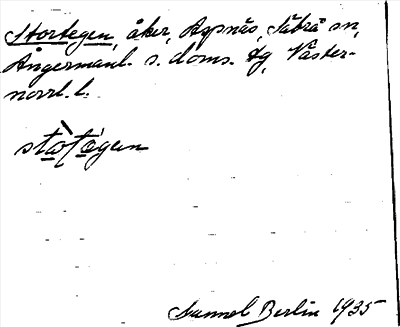 Stortegen, åker, Aspnäs, Säbrå sn,
Ångermanl. s. doms. tg, Väster-
norrl. l.
Sunnel Berlin 1935